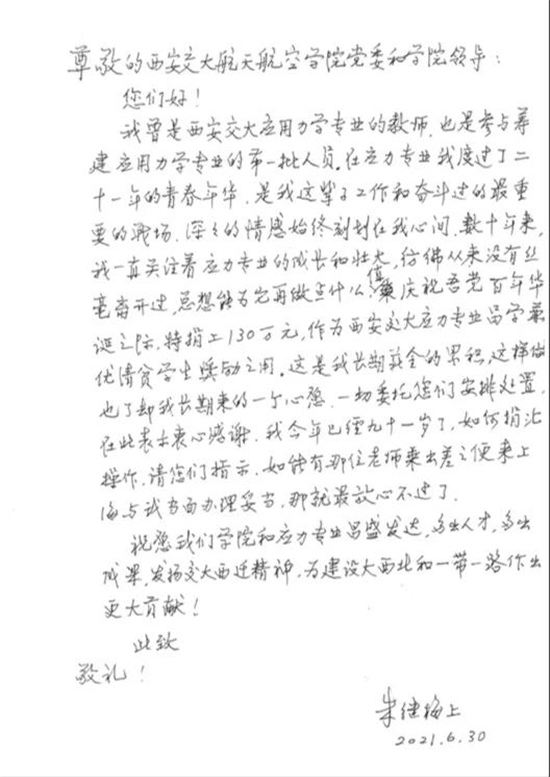 尊敬的西安交大航天航空学院党委和学院领导：
您们好！
我曾是西安交大应用力学专业的教师，也是参与筹
建应用力学专业的第一批人员。在应力专业我度过了二
十一年的青春年华，是我这辈子工作和奋斗过的最重
要的战场。深々的情感始终刻划在我心间。数十年来，
我一直关注着应力专业的成长和壮大，仿佛从来没有丝
毫离开过，总想能为它再做点什么。值庆祝吾党百年华
诞之际，特捐上130万元，作为西安交大应力专业品学兼
优清贫学生奖励之用。这是我长期薪金的累积，这样做
也了却我长期来的一个心愿。一切委托您们安排处置，
在此表示衷心感谢。我今年已经九十一岁了，如何捐汇
操作，请您们指示。如能有那位老师乘出差之便来上
海与我当面办理妥当，那就最放心不过了。
祝愿我们学院和应力专业昌盛发达，多出人才，多出
成果，发扬交大西迁精神，为建设大西北和一带一路作出
更大贡献！
此致
敬礼！
朱继梅上
2021.6.30